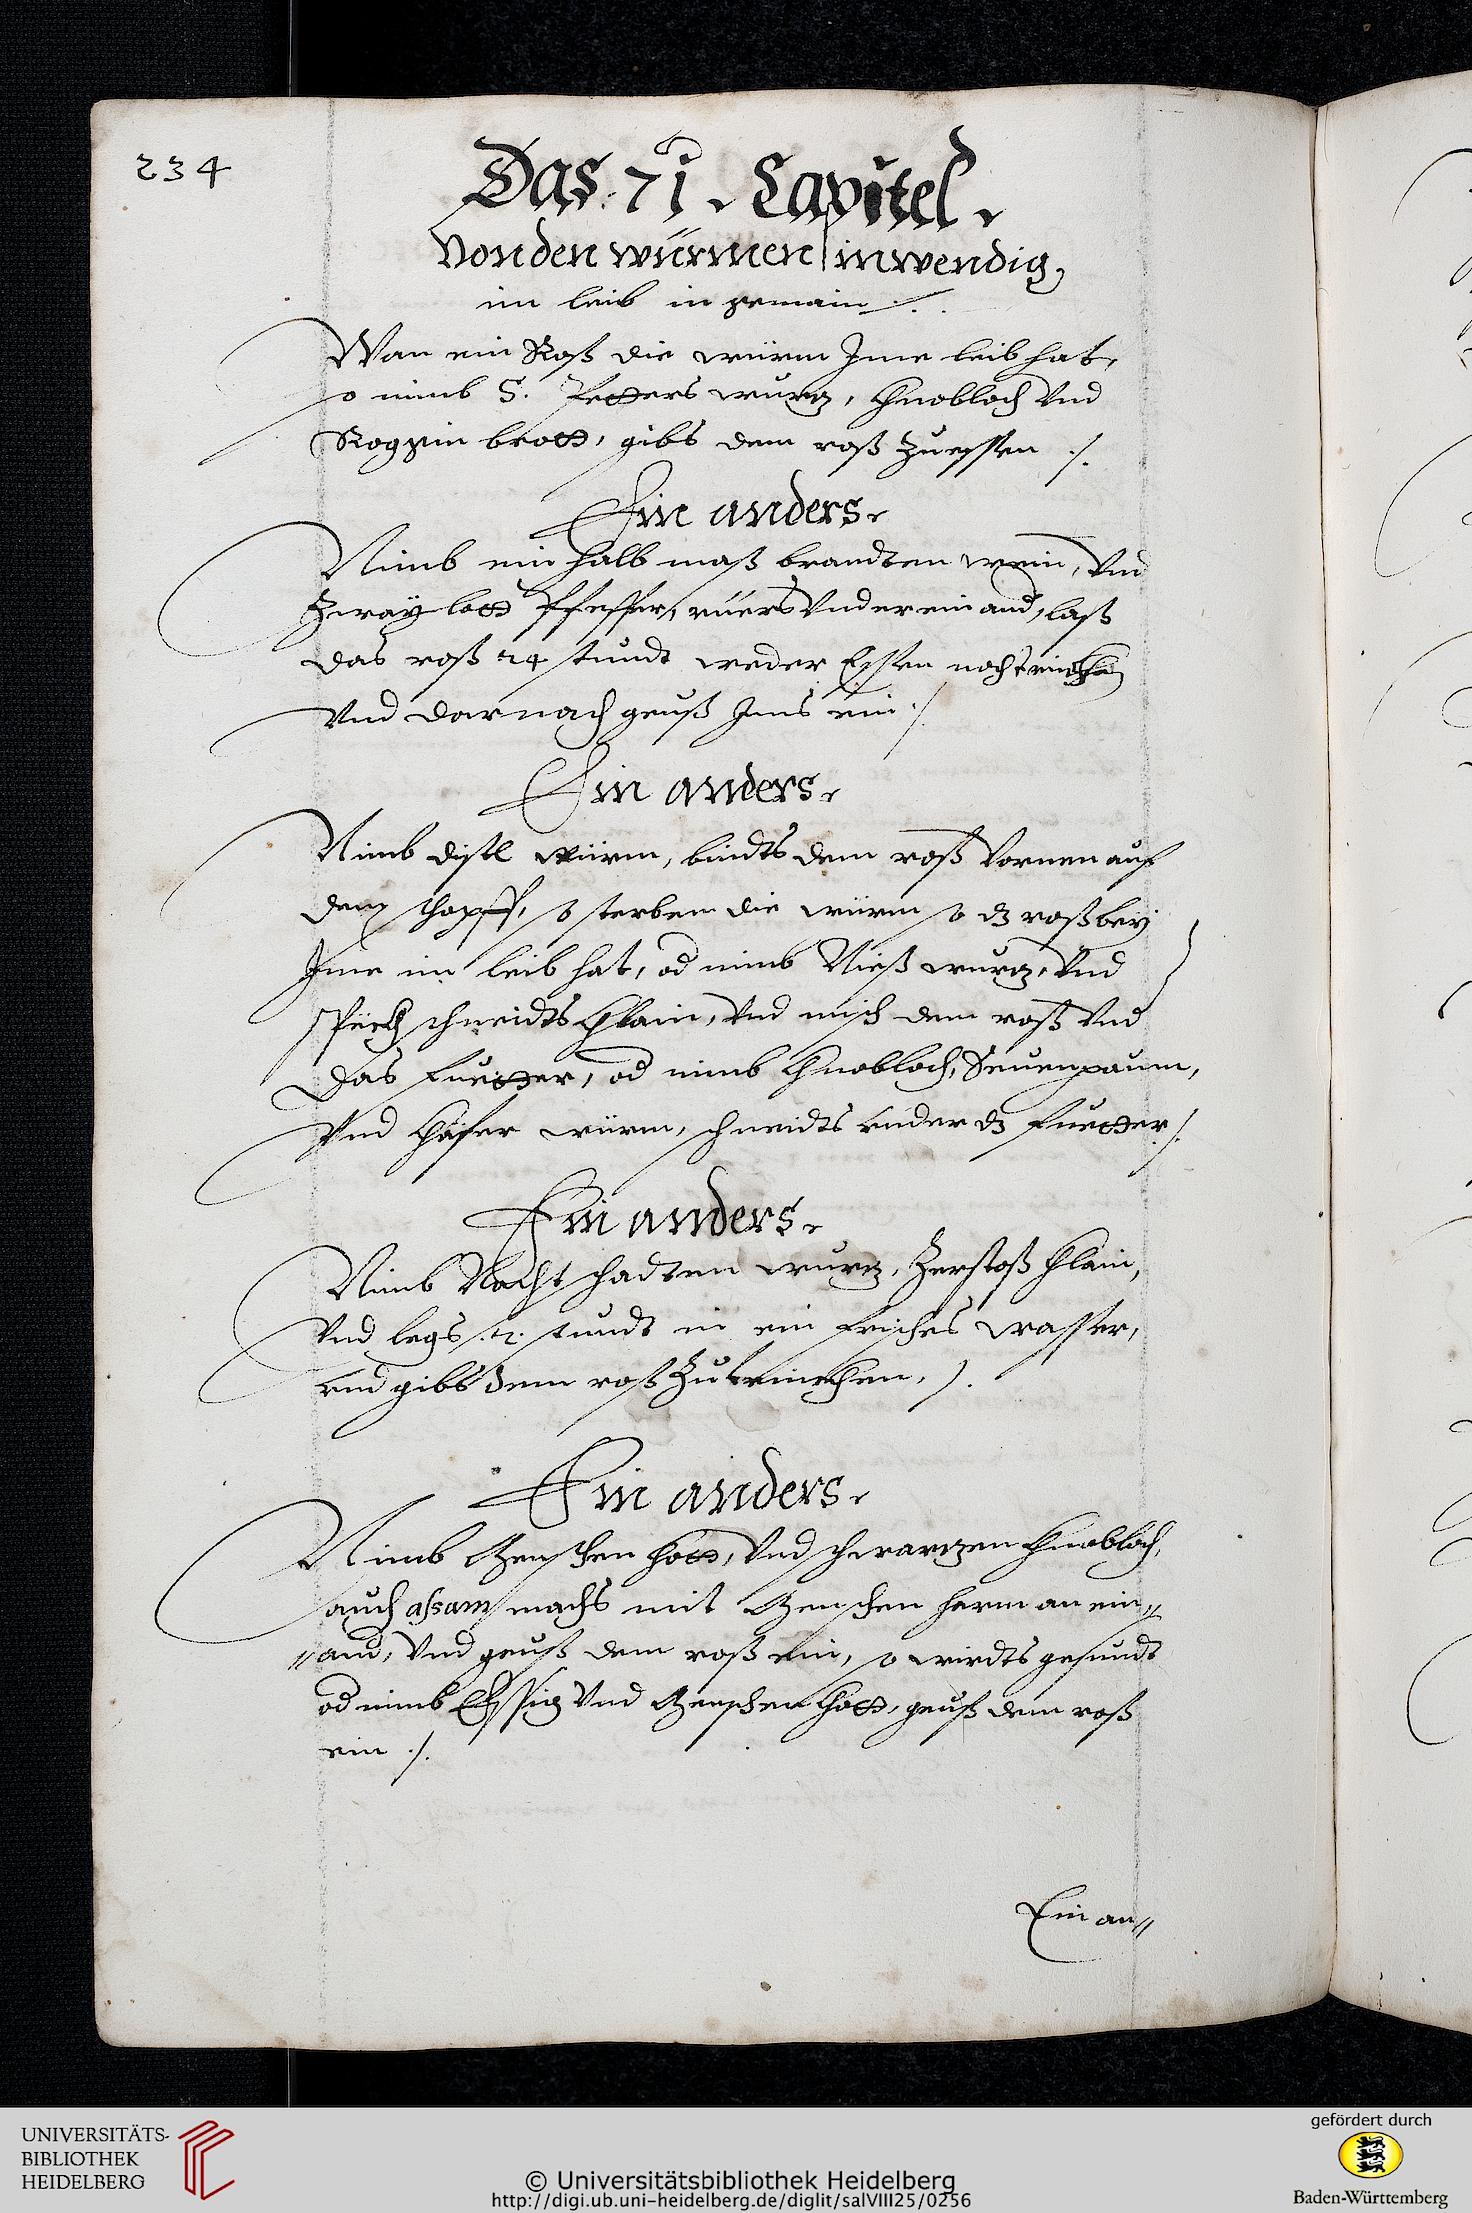 234
Das 71. Capitel.
Von den würmen inwendig,
im leib in gemain ./.
Wan ein Roß die würm Jme leib hat,
so nimb S. Petters wurtz, Khnobloch Vnd
Roggin brott, gibs dem roß zu essen ./.
Ein anders.
Nimb ein halb maß brandten wein, Vnd
Zway lott Pfeffer, rüers Vndereinand, laß
das roß 24 stundt weder Essen noch trinckhen
Vnd darnach geuß Jms ein ./.
Ein anders.
Nimb distl würm, bindts dem roß Vornen auf
dem schopff, so sterben die würm so dz roß bey
Jme im leib hat, od nimb Nieß wurtz, Vnd
Speckh schneidts Khlain, Vnd misch dem roß Vnd
das fuetter, od nimb Khnobloch, Seuenpaum,
Vnd Khäfer würm, schneidts under dz fuetter ./.
Ein anders.
Nimb Nacht schadten wurtz, Zerstoß Khlain,
Vnd legs .2. stundt in ein frisches wasser,
und gibs dem roß Zutrinckhen, ./.
Ein anders.
Nimb Menschen Khott, Vnd schwartzen Khnobloch,
auch aßam machs mit Menschen harm an ein„
„and, Vnd geuß dem roß ein, so wirdts gesundt
od nimb Essig Vnd Menschen Khott, geuß dem roß
ein ./.
Ein an„
UNIVERSITÄTS-
BIBLIOTHEK
HEIDELBERG
© Universitätsbibliothek Heidelberg
http://digi.ub.uni-heidelberg.de/diglit/salVIII25/0256
gefördert durch
Baden-Württemberg